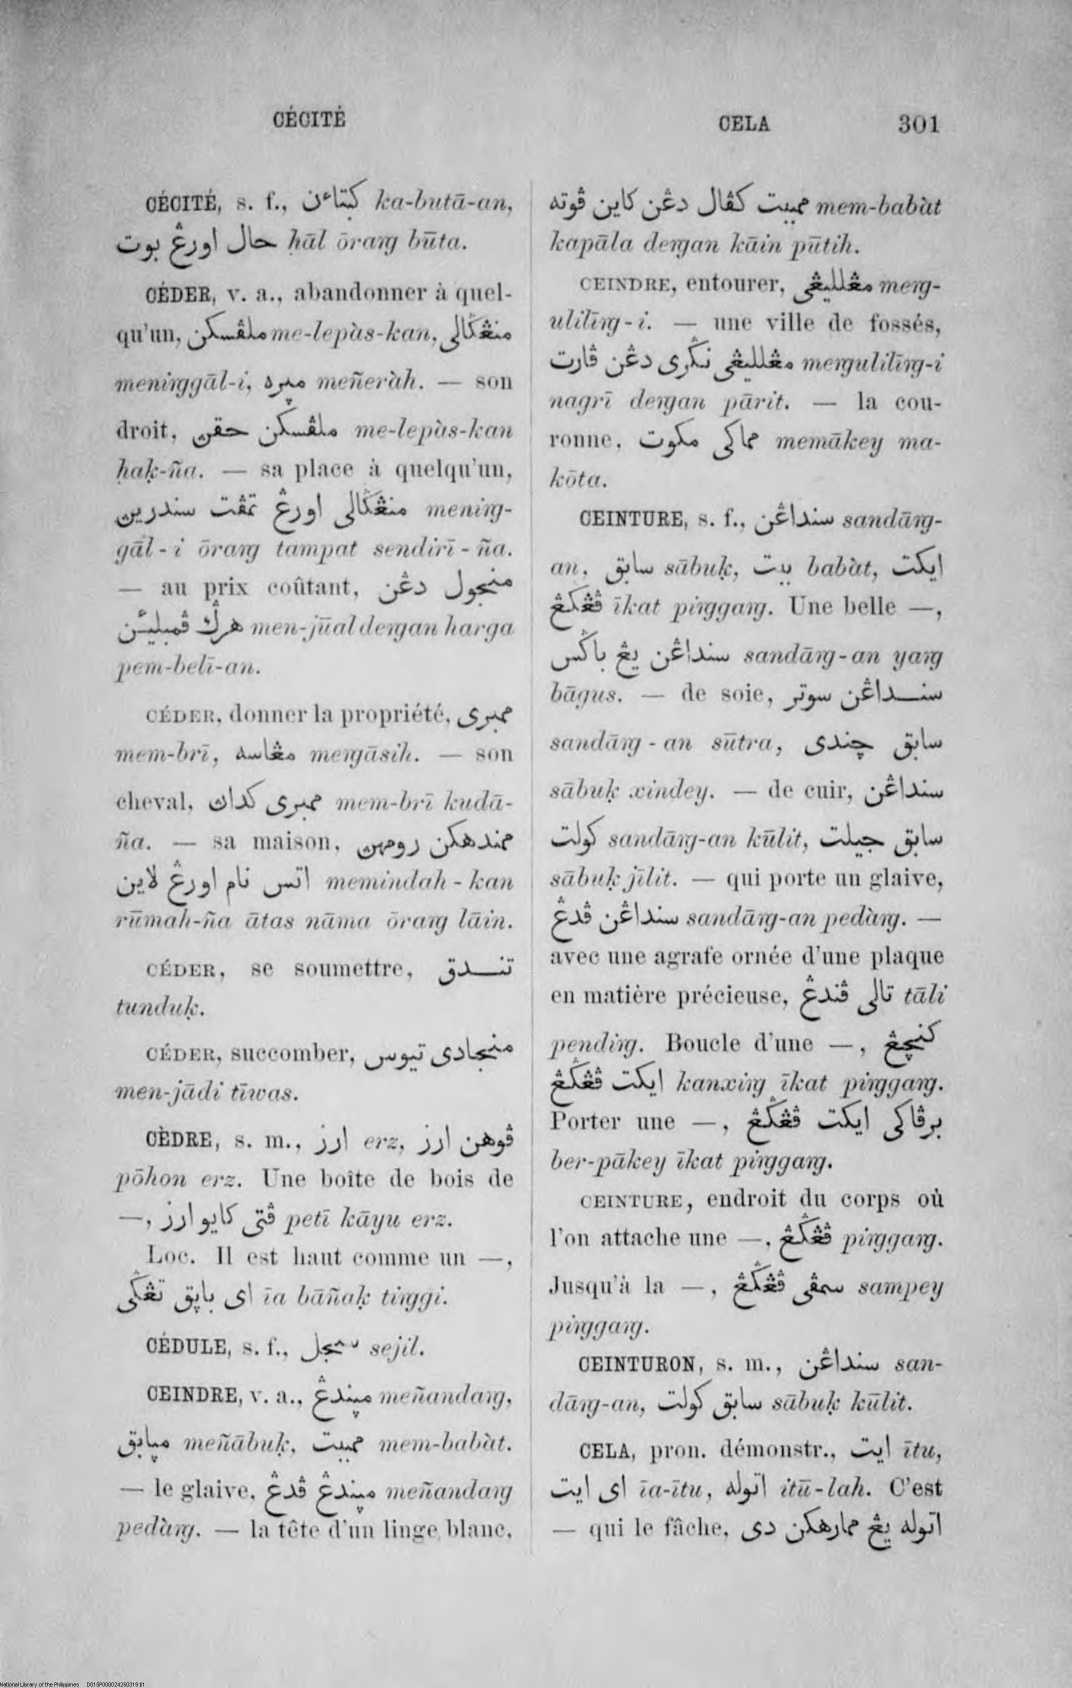 CÉCITÉ
CELA 301
CÉCITÉ, s. f., کبتاءن ka-butā-an,
حال اورڠ بوت ḥāl ōraṅg būta.
CÉDER, v. a., abandonner à quel-
qu'un, ملڤسکن me-lepàs-kan, منڠݢالی
meniṅggāl-i, مڽره meñeràh. — son
droit, ملڤسکن حقڽ me-lepàs-kan
ḥaḳ-ña. — sa place à quelqu'un,
منڠݢالی اورڠ تمڤت سندرین meniṅg-
gāl-i ōraṅg tampat sendirī-ña.
— au prix coûtant, منجول دڠن
هرݢ ڤمبلیئن men-jūal deṅgan harga
pem-belī-an.
CÉDER, donner la propriété, ممبری
mem-brī, مڠاسه meṅgāsih. — son
cheval, ممبری کداڽ mem-brī kudā-
ña. — sa maison, ممندهکن رومهڽ
اتس نام اورڠ لاین memindah-kan
rūmah-ña ātas nāma ōraṅg lāin.
CÉDER, se soumettre, تندق
tunduḳ.
CÉDER, succomber, منجادی تیوس
men-jādi tīwas.
CÈDRE, s. m., ارز erz, ڤوهن ارز
pōhon erz. Une boîte de bois de
—, ڤتی کایو ارز petī kāyu erz.
Loc. Il est haut comme un —,
ای باڽق تڠݢی īa bāñaḳ tiṅggi.
CÉDULE, s. f., سجل sejil.
CEINDRE, v. a., مڽندڠ meñandaṅg,
مڽابق meñābuḳ, ممببت mem-babàt.
— le glaive, مڽندڠ ڤدڠ meñandaṅg
pedàṅg. — la tête d'un linge blanc,
ممببت کڤال دڠن کاین ڤوته mem-babàt
kapāla deṅgan kāin pūtih.
CEINDRE, entourer, مڠللیڠی meṅg-
ulilīṅg-i. — une ville de fossés,
مڠللیڠی نݢری دڠن ڤارت meṅgulilīṅg-i
nagrī deṅgan pārit. — la cou-
ronne, مماکی مکوت memākey ma-
kōta.
CEINTURE, s. f., سنداڠن sandāṅg-
an, سابق sābuḳ, ببت babàt, ایکت
ڤڠݢڠ īkat piṅggaṅg. Une belle —,
سنداڠن یڠ باݢس sandāṅg-an yaṅg
bāgus. — de soie, سنداڠن سوتر
sandāṅg-an sūtra, سابق چندی
sābuḳ xindey. — de cuir, سنداڠن
کولت sandāṅg-an kūlit, سابق جیلت
sābuḳ jīlit. — qui porte un glaive,
سنداڠن ڤدڠ sandāṅg-an pedàṅg. —
avec une agrafe ornée d'une plaque
en matière précieuse, تالی ڤندڠ tāli
pendiṅg. Boucle d'une —, کنچڠ
ایکت ڤڠݢڠ kanxiṅg īkat piṅggaṅg.
Porter une —, برڤاکی ایکت ڤڠݢڠ
ber-pākey īkat piṅggaṅg.
CEINTURE, endroit du corps où
l'on attache une —, ڤڠݢڠ piṅggaṅg.
Jusqu'à la —, سمڤی ڤڠݢڠ sampey
piṅggaṅg.
CEINTURON, s. m., سنداڠن san-
dāṅg-an, سابق کولت sābuḳ kūlit.
CELA, pron. démonstr., ایت ītu,
ای ایت īa-ītu, اتوله itū-lah. C'est
— qui le fâche, اتوله یڠ ممارهکن دی
National Library of the Philippines